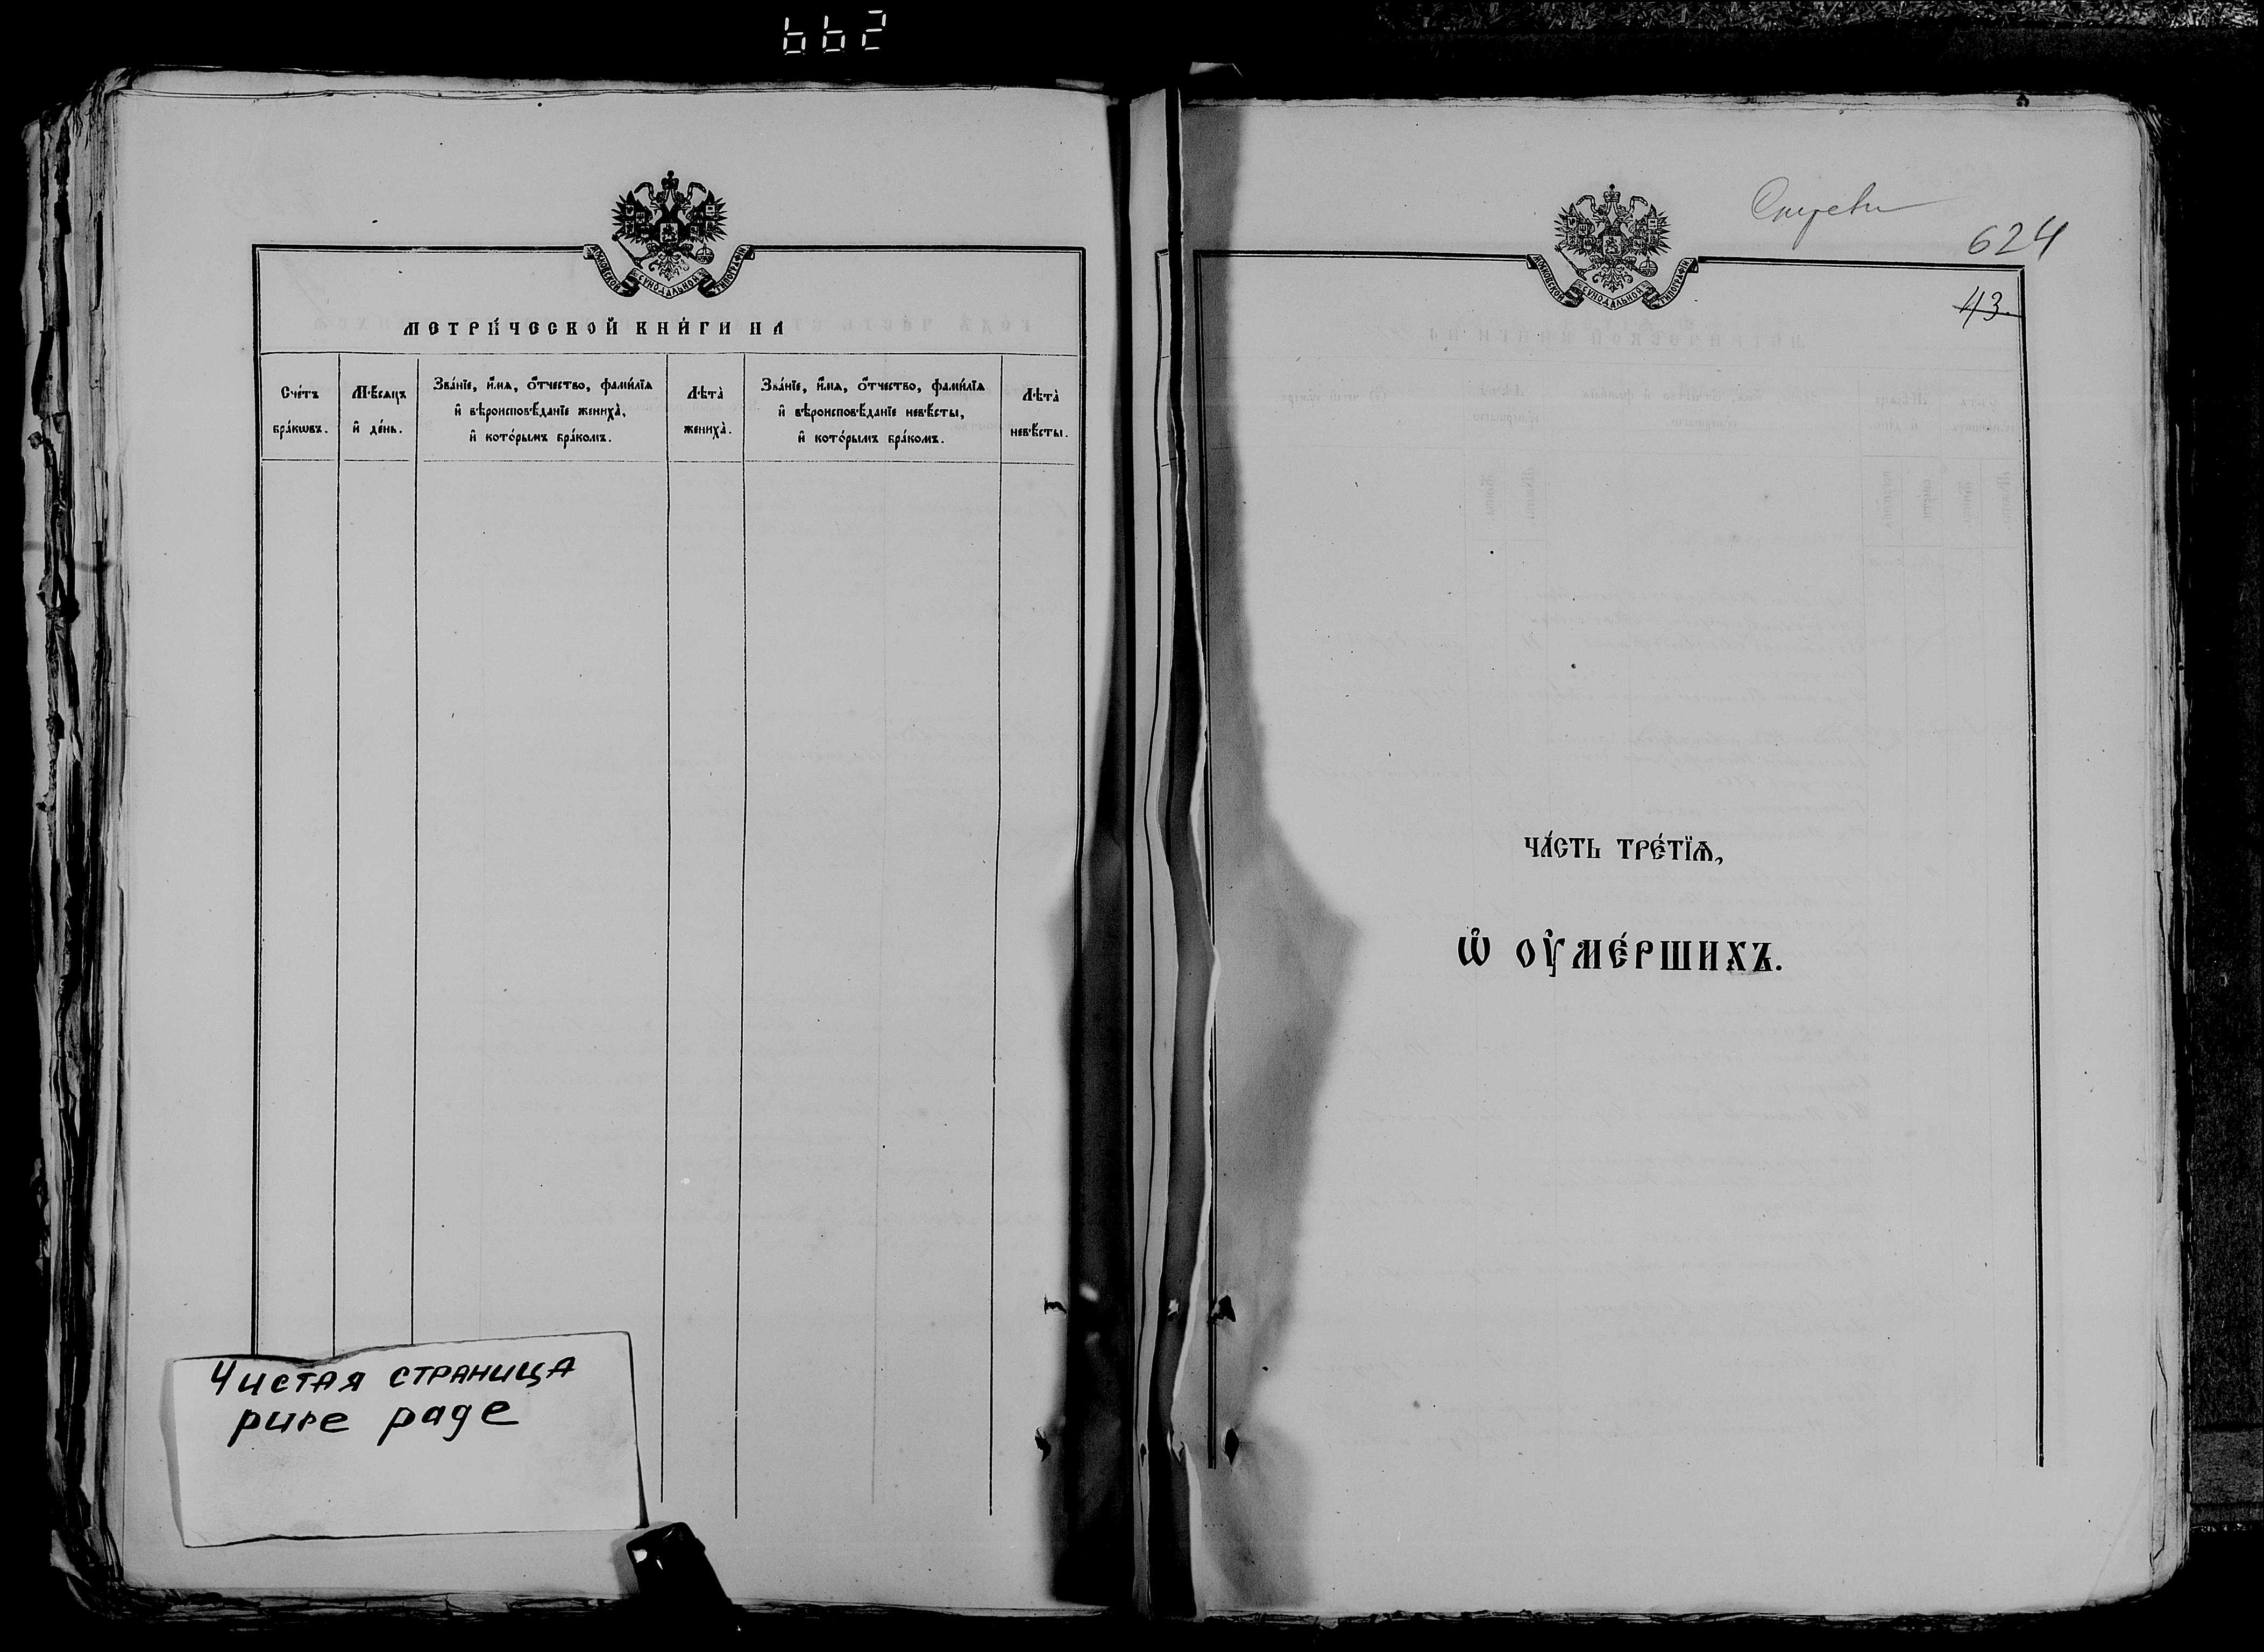 662
МОСКОВСКОЙ СУНОДАЛЬНОЙ ТИПОГРАФІИ
МЕТРИ́ЧЕСКОЙ КНИ́ГИ НА
Сче́тъ бра́кѡвъ.
Мѣ́сяцъ и҆ де́нь.
Зва́нїе, и҆́мѧ, ѻ҆́тчество, фами́лїѧ
и҆ вѣроисповѣ́данїе жениха̀,
и҆ кото́рымъ бра́комъ.
Лѣта̀ жениха̀.
Зва́нїе, и҆́мѧ, ѻ҆́тчество, фами́лїѧ
и҆ вѣроисповѣ́данїе невѣ́сты,
и҆ кото́рымъ бра́комъ.
Лѣта̀ невѣ́сты.
Чистая страница
pure page
624
МОСКОВСКОЙ СУНОДАЛЬНОЙ ТИПОГРАФІИ
43.
ЧА́СТЬ ТРЕ́ТЇѦ,
Ѡ҆ ОУ҆МЕ́РШИХЪ.